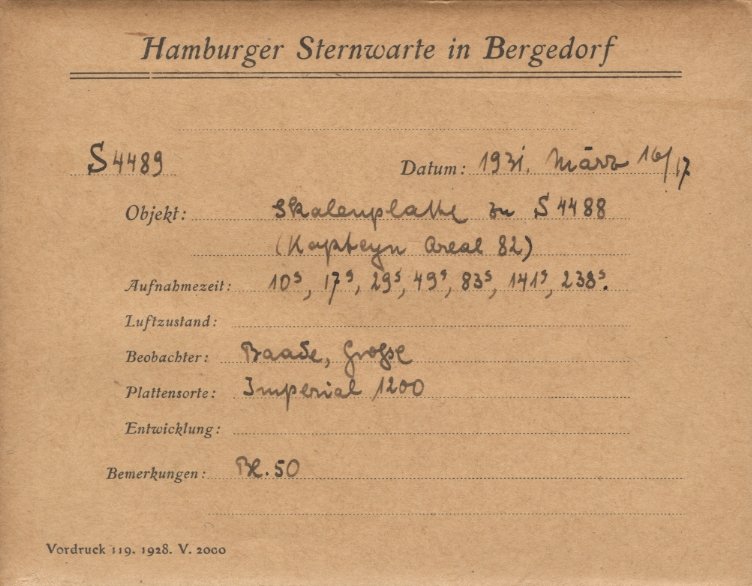 Hamburger Sternwarte in Bergedorf
S 4489
Datum: 1931. März 16/17
Objekt: Skalenplatte zu S 4488
(Kapteyn Areal 82)
Aufnahmezeit: 10ˢ, 17ˢ, 29ˢ, 49ˢ, 83ˢ, 141ˢ, 238ˢ.
Luftzustand:
Beobachter: Baade, Große
Plattensorte: Imperial 1200
Entwicklung:
Bemerkungen: Bl. 50
Vordruck 119. 1928. V. 2000